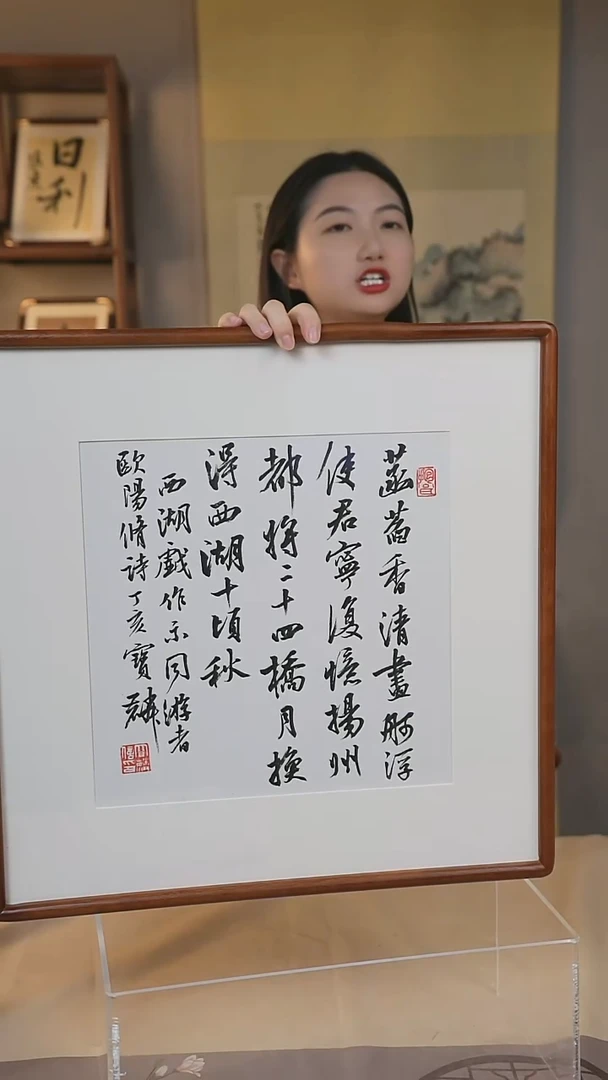 菡萏香清畫舸浮
使君寧復憶揚州
都將二十四橋月換
得西湖十頃秋
西湖戲作示同游者
歐陽脩詩丁亥寶麟
日利